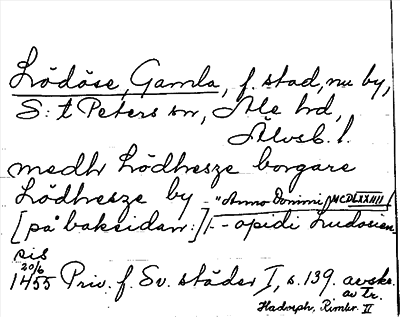 Lödöse, Gamla, f. stad, nu by,
S:t Peters sn, Ale hd,
Älvsb. l.
medh Lödhesze borgare
Lödhesze by - "Anno Domini MCDLXXIII
[på baksidan:] - opidi Ludosien
sis
20/6
1455 Priv. f. Sv. städer I, s. 139. avskr.
av Tr.
Hadorph, Rimkr. II